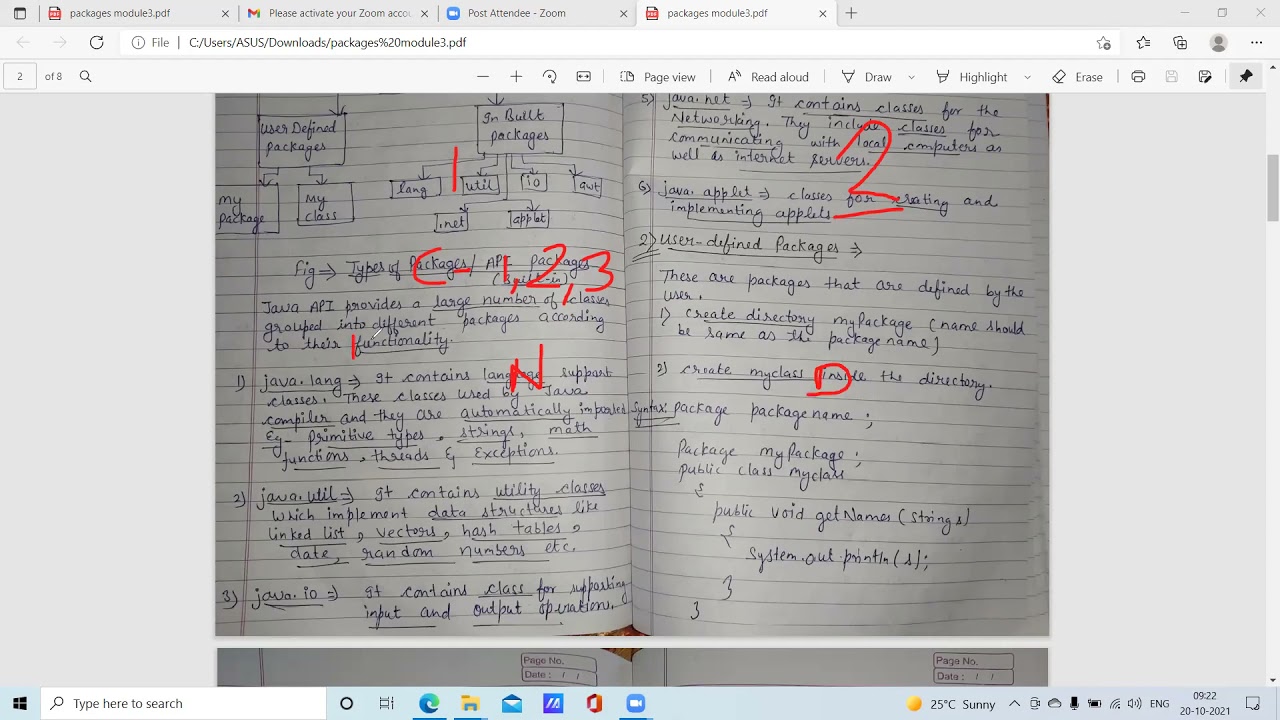 packages module3.pdf
Please activate your Zoom accou
Post Attendee - Zoom
packages module3.pdf
File C:/Users/ASUS/Downloads/packages%20module3.pdf
2 of 8
Page view
Read aloud
Draw
Highlight
Erase
User Defined packages
In Built packages
My package
My class
lang
util
io
awt
.net
applet
1
Fig ⇒ Types of Packages / API Packages
(Built-in)
C- 1, 2, 3
Java API provides a large number of classes
grouped into different packages according
to their functionality.
1
N
1) java.lang ⇒ It contains language support
classes. These classes used by Java
compiler and they are automatically imported
Eg- Primitive types, strings, math
functions, threads & Exceptions.
2) java.util ⇒ It contains utility classes
which implement data structures like
linked list, vectors, hash tables,
date, random numbers etc.
3) java.io ⇒ It contains class for supporting
input and output operations.
5) java.net ⇒ It contains classes for the
Networking. They include classes for
communicating with local computers as
well as internet servers.
2
6) java.applet ⇒ classes for creating and
implementing applets
2) User-defined Packages ⇒
These are packages that are defined by the
user.
1) create directory myPackage (name should
be same as the package name)
2) create myclass inside the directory.
D
Syntax: package packagename ;
Package myPackage ;
public class myclass
{
public void getNames (String s)
{
System.out.println(s);
}
}
Page No.
Date : / /
Page No.
Date : / /
Type here to search
25°C Sunny
ENG
09:22
20-10-2021